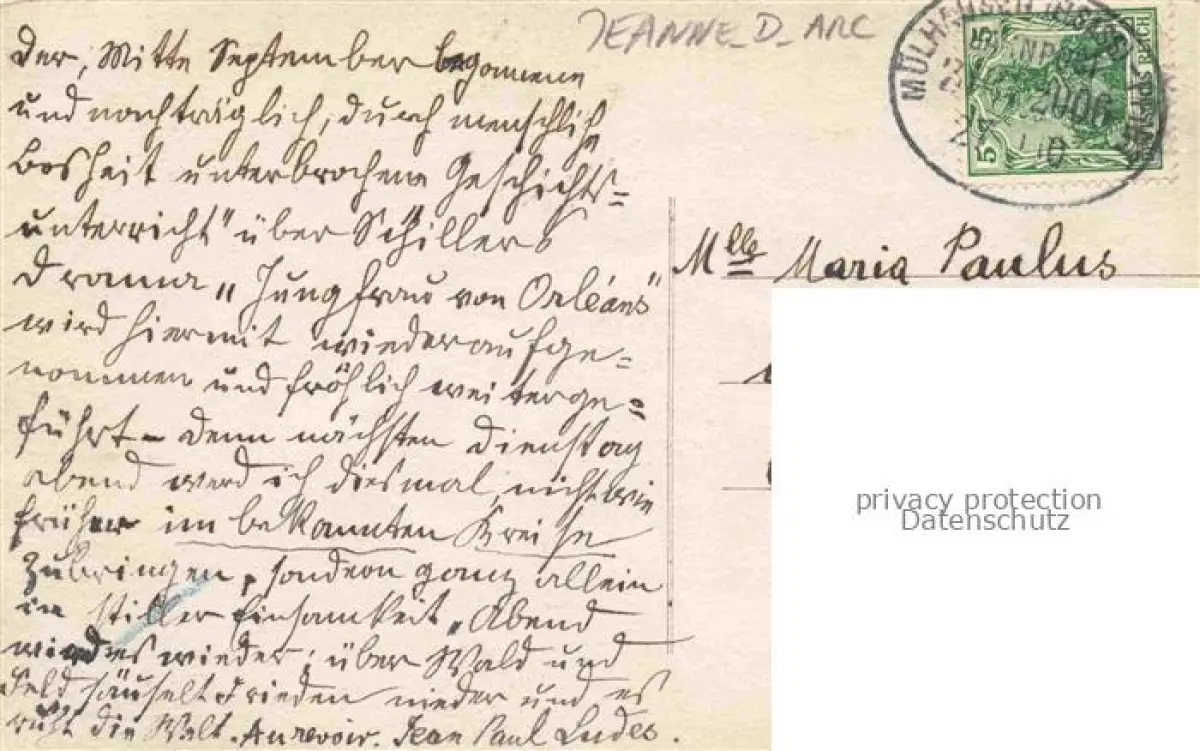 JEANNE_D_ARC
MÜLHAUSEN
BAHNPOST
ZUG 2006
5
DEUTSCHES REICH
Der, Mitte September begonnene
und nachträglich, durch menschliche
Bosheit unterbrochene Geschichts=
unterricht" über Schillers
Drama „Jungfrau von Orléans"
wird hiermit wiederaufge=
nommen und fröhlich weiterge=
führt - denn nächsten Dienstag
abend werd ich diesmal, nicht wie
früher im bekannten Kreise
zubringen, sondern ganz allein
in stiller Einsamkeit „Abend
wird es wieder; über Wald und
Feld säuselt Frieden nieder und es
ruht die Welt. Au revoir. Jean Paul Ludes.
Mlle Maria Paulus
privacy protection
Datenschutz